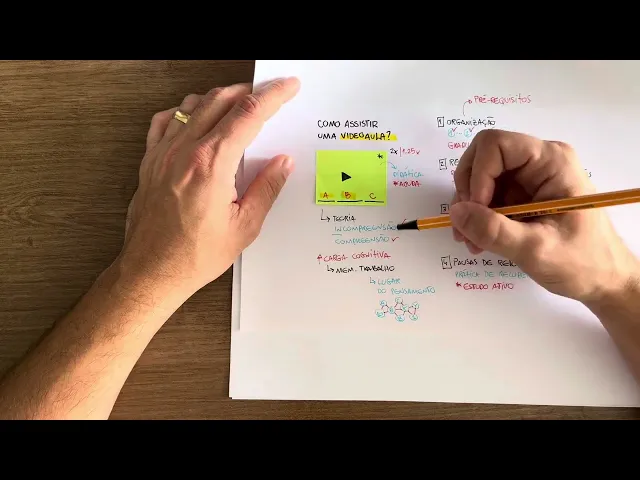 COMO ASSISTIR
UMA VIDEOAULA?
2x | 1.25x
A B C
DIDÁTICA
* AQUDA
↳ TEORIA
INCOMPREENSÃO
COMPREENSÃO ✓
↑ CARGA COGNITIVA
↳ MEM. TRABALHO
↳ LUGAR
DO PENSAMENTO
PRÉ-REQUISITOS
1 ORGANIZAÇÃO
2
3
4 PAUSAS DE
PRÁTICA DE
* ESTUDO ATIVO